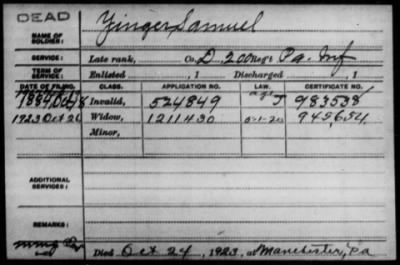 DEAD
NAME OF SOLDIER: Zinger Samuel
SERVICE: Late rank, Co. D, 200 Reg't Pa. Inf
TERM OF SERVICE: Enlisted , 1 Discharged , 1
DATE OF FILING. CLASS. APPLICATION NO. LAW. CERTIFICATE NO.
1884 Oct 8 Invalid, 524849 J 983538
1923 Oct 26 Widow, 1211430 5-1-20 945654
Minor,
ADDITIONAL SERVICES:
REMARKS:
Died Oct 24, 1923, at Manchester, Pa